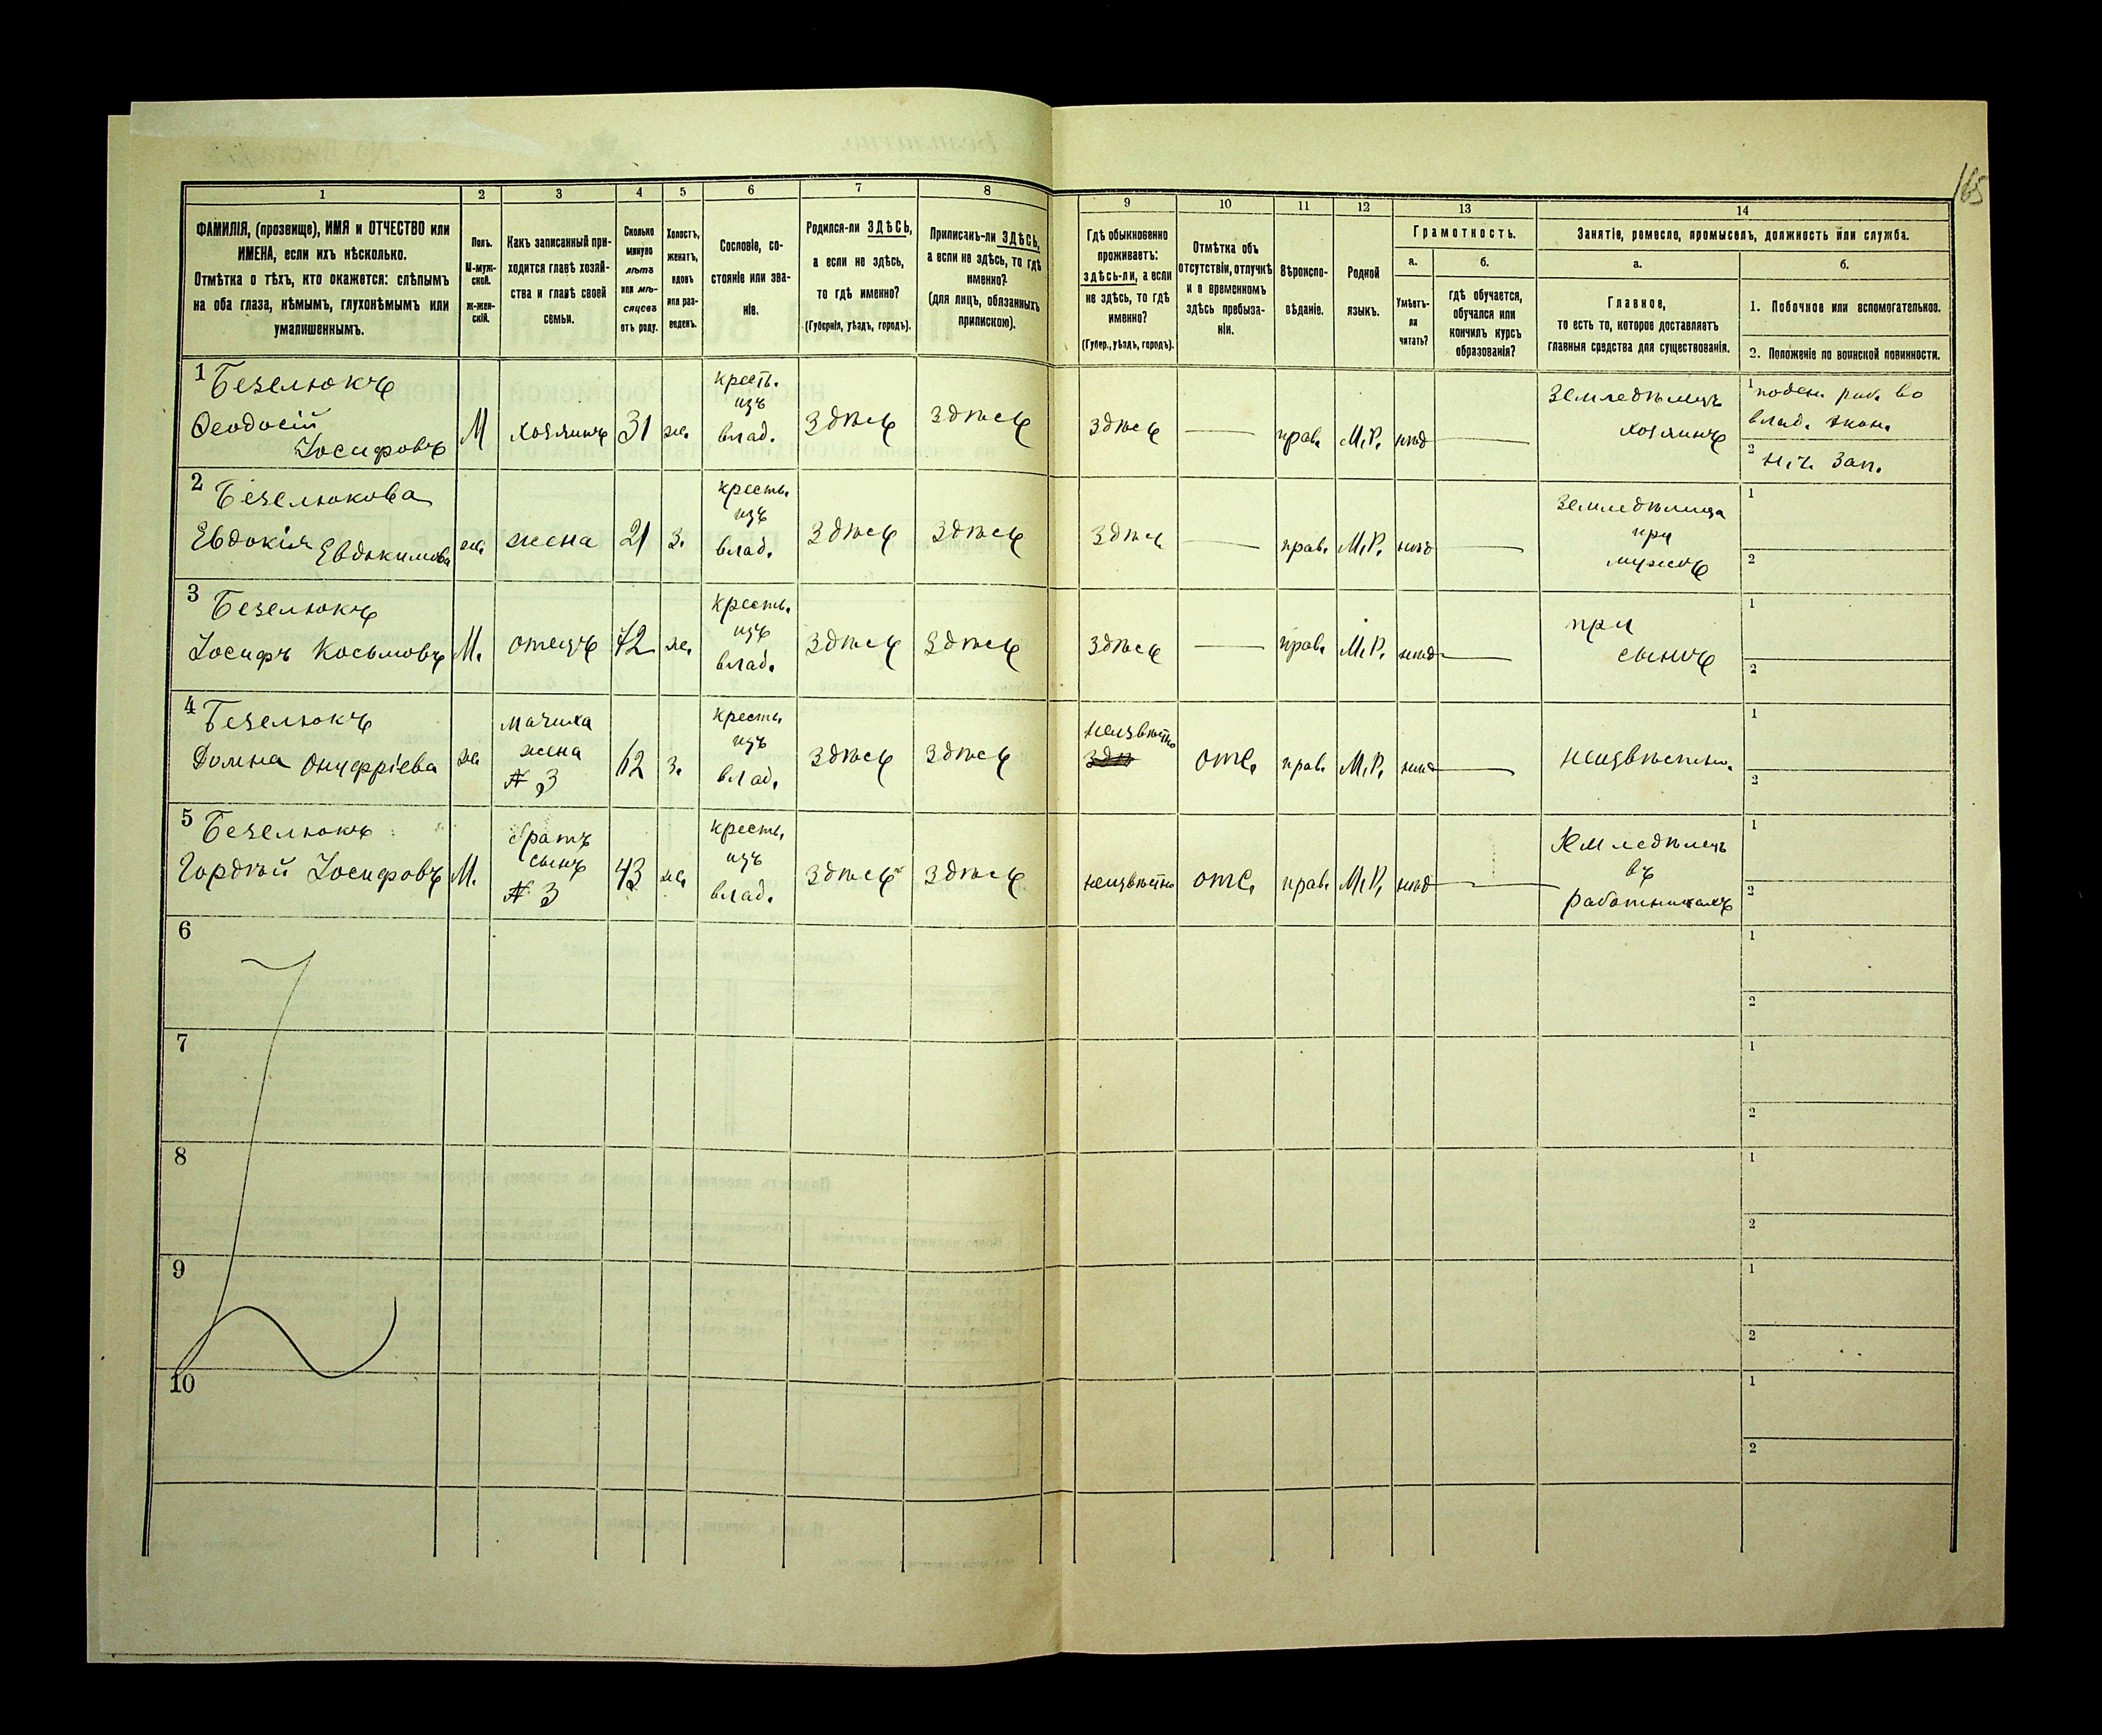 165
1 2 3 4 5 6 7 8 9 10 11 12 13 14
ФАМИЛІЯ, (прозвище), ИМЯ и ОТЧЕСТВО или
ИМЕНА, если ихъ нѣсколько.
Отмѣтка о тѣхъ, кто окажется: слѣпымъ
на оба глаза, нѣмымъ, глухонѣмымъ или
умалишеннымъ.
Полъ.
М-муж-
ской.
Ж-жен-
скій.
Какъ записанный при-
ходится главѣ хозяй-
ства и главѣ своей
семьи.
Сколько
минуло
лѣтъ
или мѣ-
сяцевъ
отъ роду.
Холостъ,
женатъ,
вдовъ
или раз-
веденъ.
Сословіе, со-
стояніе или зва-
ніе.
Родился-ли ЗДѢСЬ,
а если не здѣсь,
то гдѣ именно?
(Губернія, уѣздъ, городъ).
Приписанъ-ли ЗДѢСЬ,
а если не здѣсь, то гдѣ
именно?
(для лицъ, обязанныхъ
припискою).
Гдѣ обыкновенно
проживаетъ:
здѣсь-ли, а если
не здѣсь, то гдѣ
именно?
(Губер., уѣздъ, городъ).
Отмѣтка объ
отсутствіи, отлучкѣ
и о временномъ
здѣсь пребыва-
ніи.
Вѣроиспо-
вѣданіе.
Родной
языкъ.
Грамотность.
а.
Умѣетъ-
ли
читать?
б.
гдѣ обучается,
обучался или
кончилъ курсъ
образованія?
Занятіе, ремесло, промыселъ, должность или служба.
а.
Главное,
то есть то, которое доставляетъ
главныя средства для существованія.
б.
1. Побочное или вспомогательное.
2. Положеніе по воинской повинности.
1 Безелюкъ
Феодосій
Іосифовъ
М хозяинъ 31 ж.
крест.
изъ
влад.
здѣсь здѣсь здѣсь — прав. М.Р. нѣт —
Земледѣлецъ
хозяинъ
1 поден. раб. во
влад. экон.
2 н.ч. зап.
2 Безелюкова
Евдокія Евдокимова
ж. жена 21 з.
кресть.
изъ
влад.
здѣсь здѣсь здѣсь — прав. М.Р. нѣт —
Земледѣлица
при
мужѣ
1
2
3 Безелюкъ
Іосифъ Косьмовъ
М. отецъ 72 ж.
кресть.
изъ
влад.
здѣсь здѣсь здѣсь — прав. М.Р. нѣт —
при
сынѣ
1
2
4 Безелюкъ
Домна Онуфріева
ж.
мачиха
жена
№ 3
62 з.
кресть.
изъ
влад.
здѣсь здѣсь
неизвѣстно
отс. прав. М.Р. нѣт —
неизвѣстно.
1
2
5 Безелюкъ
Гордѣй Іосифовъ
М.
братъ
сынъ
№ 3
43 ж.
кресть.
изъ
влад.
здѣсь здѣсь неизвѣстно отс. прав. М.Р. нѣт —
Земледѣлецъ
въ
работникахъ
1
2
6
1
2
7
1
2
8
1
2
9
1
2
10
1
2